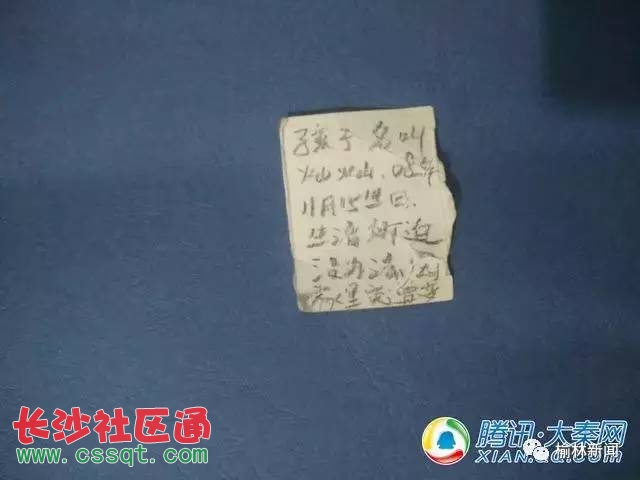 孩子名叫
灿灿、08年
11月15生日.
生活所迫
没有办法
希望
长沙社区通
www.cssqt.com
腾讯·大秦网
XIAN.QQ.COM
榆林新闻